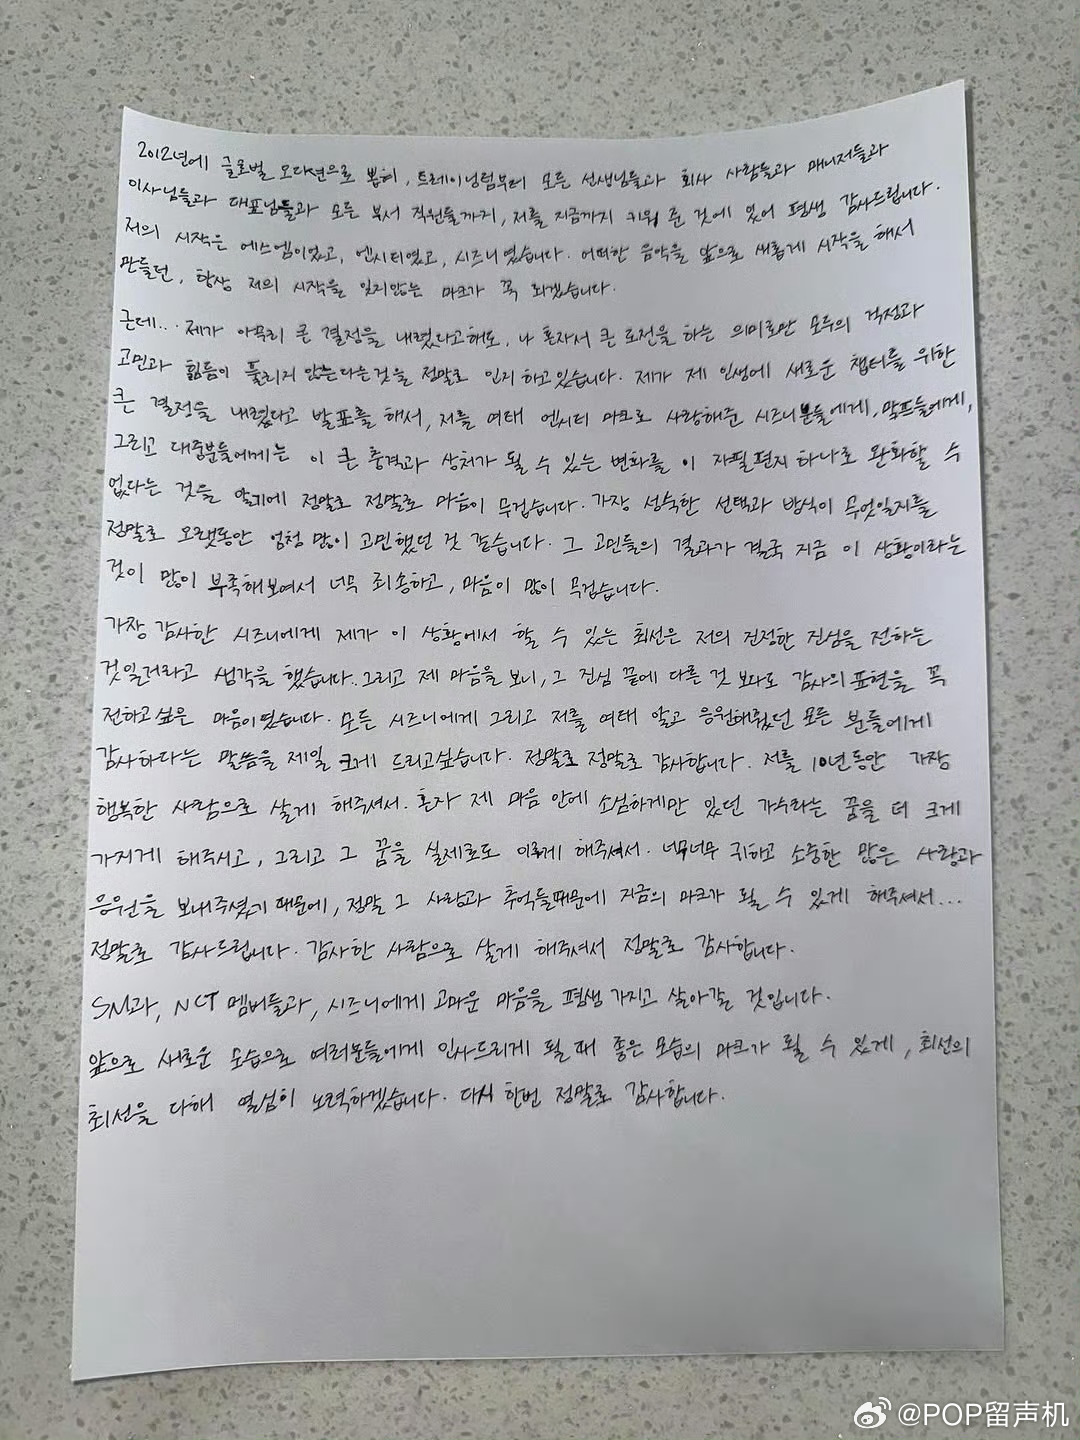 2012년에 글로벌 오디션으로 뽑혀, 트레이닝팀부터 모든 선생님들과 회사 사람들과 매니저들과
이사님들과 대표님들과 모든 부서 직원들까지, 저를 지금까지 키워 준 것에 있어 평생 감사드립니다.
저의 시작은 에스엠이었고, 엔시티였고, 시즈니였습니다. 어떠한 음악을 앞으로 새롭게 시작을 해서
만들던, 항상 저의 시작을 잊지않는 마크가 꼭 되겠습니다.
근데... 제가 아무리 큰 결정을 내렸다고해도, 나 혼자서 큰 도전을 하는 의미로만 모두의 걱정과
고민과 힘듬이 풀리지 않는다는것을 정말로 인지하고있습니다. 제가 제 인생에 새로운 챕터를 위한
큰 결정을 내렸다고 발표를 해서, 저를 여태 엔시티 마크로 사랑해준 시즈니분들에게, 막프들에게,
그리고 대중분들에게는 이 큰 충격과 상처가 될 수 있는 변화를 이 자필편지 하나로 완화할 수
없다는 것을 알기에 정말로 정말로 마음이 무겁습니다. 가장 성숙한 선택과 방식이 무엇일지를
정말로 오랫동안 엄청 많이 고민했던 것 같습니다. 그 고민들의 결과가 결국 지금 이 상황이라는
것이 많이 부족해보여서 너무 죄송하고, 마음이 많이 무겁습니다.
가장 감사한 시즈니에게 제가 이 상황에서 할 수 있는 최선은 저의 진정한 진심을 전하는
것일거라고 생각을 했습니다. 그리고 제 마음을 보니, 그 진심 끝에 다른 것 보다도 감사의 표현을 꼭
전하고싶은 마음이었습니다. 모든 시즈니에게 그리고 저를 여태 알고 응원해줬던 모든 분들에게
감사하다는 말씀을 제일 크게 드리고싶습니다. 정말로 정말로 감사합니다. 저를 10년동안 가장
행복한 사람으로 살게 해주셔서. 혼자 제 마음 안에 소심하게만 있던 가수라는 꿈을 더 크게
가지게 해주시고, 그리고 그 꿈을 실제로도 이루게 해주셔서. 너무너무 귀하고 소중한 많은 사랑과
응원을 보내주셨기 때문에, 정말 그 사랑과 추억들때문에 지금의 마크가 될 수 있게 해주셔서...
정말로 감사드립니다. 감사한 사람으로 살게 해주셔서 정말로 감사합니다.
SM과, NCT 멤버들과, 시즈니에게 고마운 마음을 평생 가지고 살아갈 것입니다.
앞으로 새로운 모습으로 여러분들에게 인사드리게 될 때 좋은 모습의 마크가 될 수 있게, 최선의
최선을 다해 열심히 노력하겠습니다. 다시 한번 정말로 감사합니다.
@POP留声机